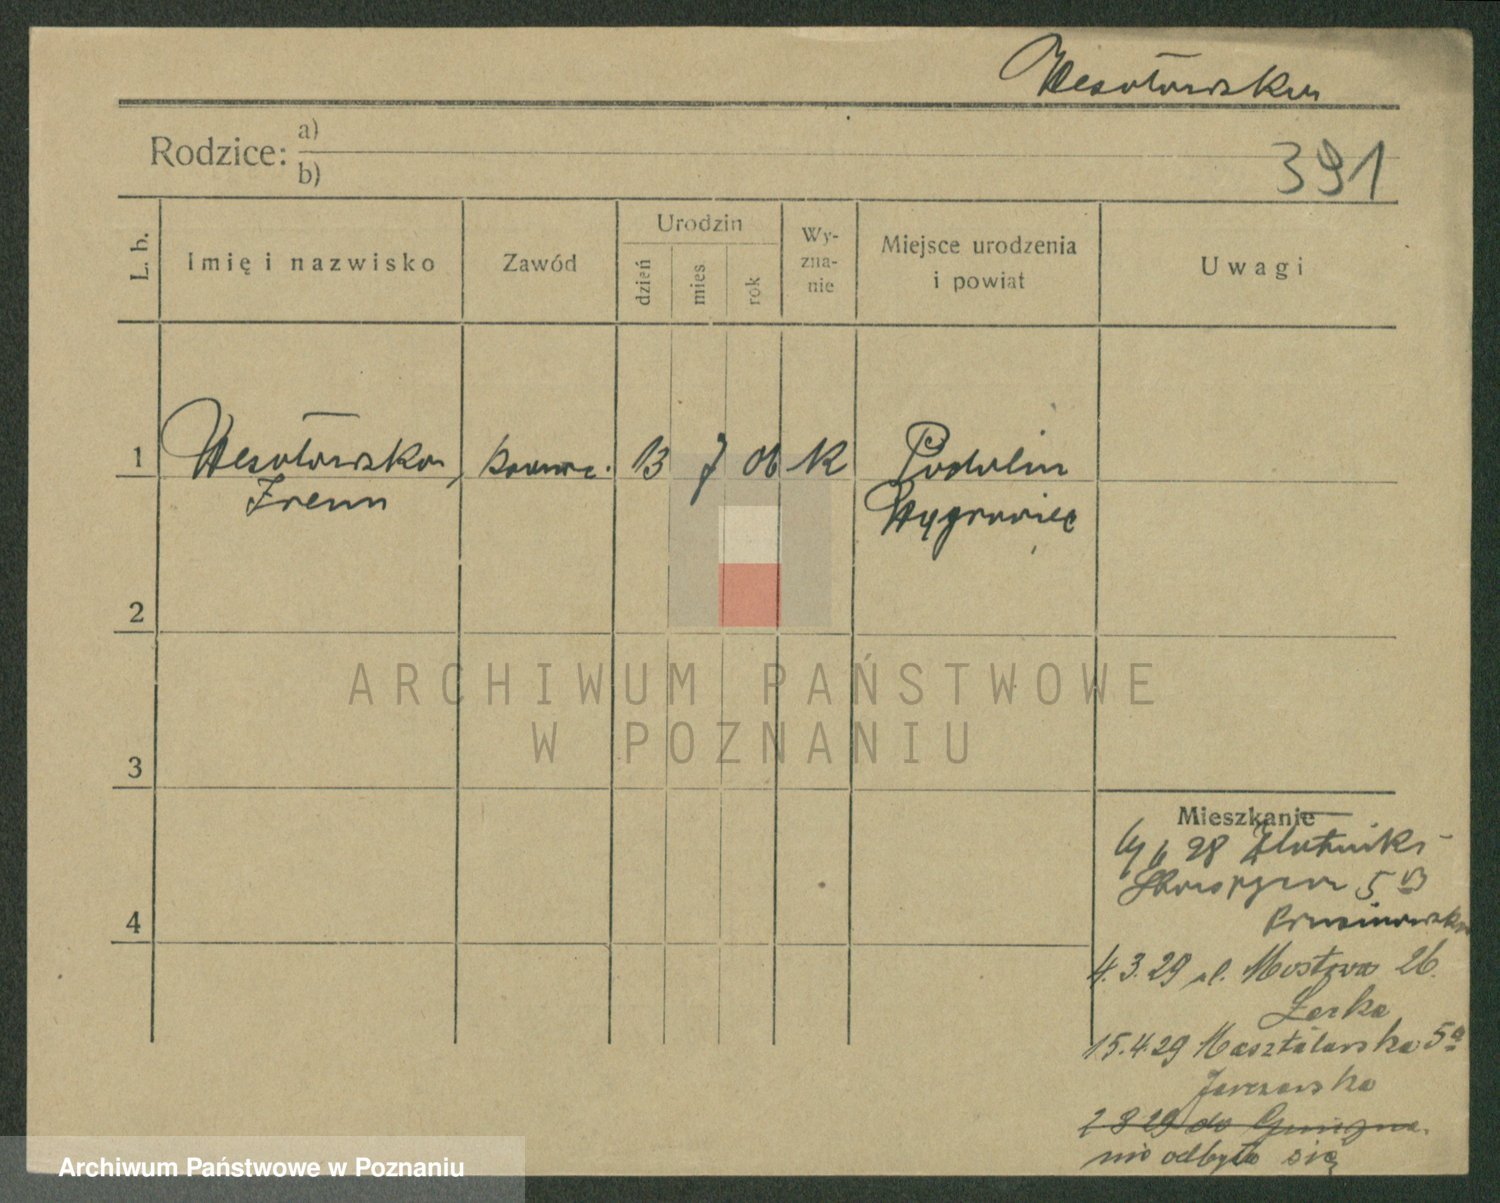 Wesołowska
Rodzice: a)
b)
391
L. b.
Imię i nazwisko
Zawód
Urodzin
dzień
mies
rok
Wy-
zna-
nie
Miejsce urodzenia
i powiat
Uwagi
1 Wesołowska, 13 7 06 K Podolin
Irena Wągrowiec
2
3
4
ARCHIWUM PAŃSTWOWE
W POZNANIU
Mieszkanie
28 Złotniki
5
4.3.29 ul. Mostowa 26.
15.4.29 Masztalarska 5a
2 8 29 do Gniezna.
nie odbyło się
Archiwum Państwowe w Poznaniu